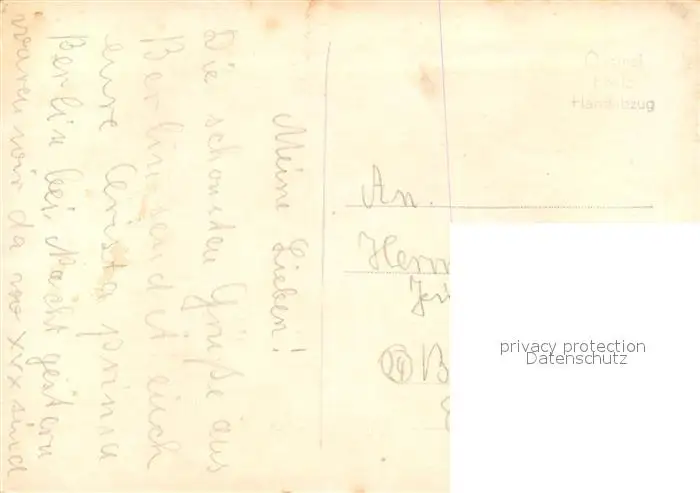 Meine Lieben!
Die schönsten Grüße aus
Berlin sendet euch
eure Christa
Berlin bei Nacht gestern
waren wir da wo xxx sind
An
Herrn
Handabzug
privacy protection
Datenschutz